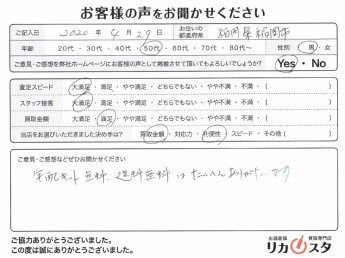 お客様の声をお聞かせください
ご記入日 2020 年 4 月 29 日 お住いの都道府県 福岡県福岡市
年齢 20代・30代・40代・50代・60代・70代・80代〜 性別 男・女
ご意見・ご感想を弊社ホームページにお客様の声として掲載させて頂いてもよろしいでしょうか？ Yes・No
査定スピード 大満足・満足・やや満足・どちらでもない・やや不満・不満・( )
スタッフ接客 大満足・満足・やや満足・どちらでもない・やや不満・不満・( )
買取金額 大満足・満足・やや満足・どちらでもない・やや不満・不満・( )
当店をお選びいただきました決め手は？ 買取金額・対応力・利便性・スピード・その他( )
ご意見・ご感想などぜひお聞かせください
キット無料、送料無料はたいへんありがたいです
ご協力ありがとうございました。
この度は誠にありがとうございました。
お酒直係 買取専門店
リカスタ